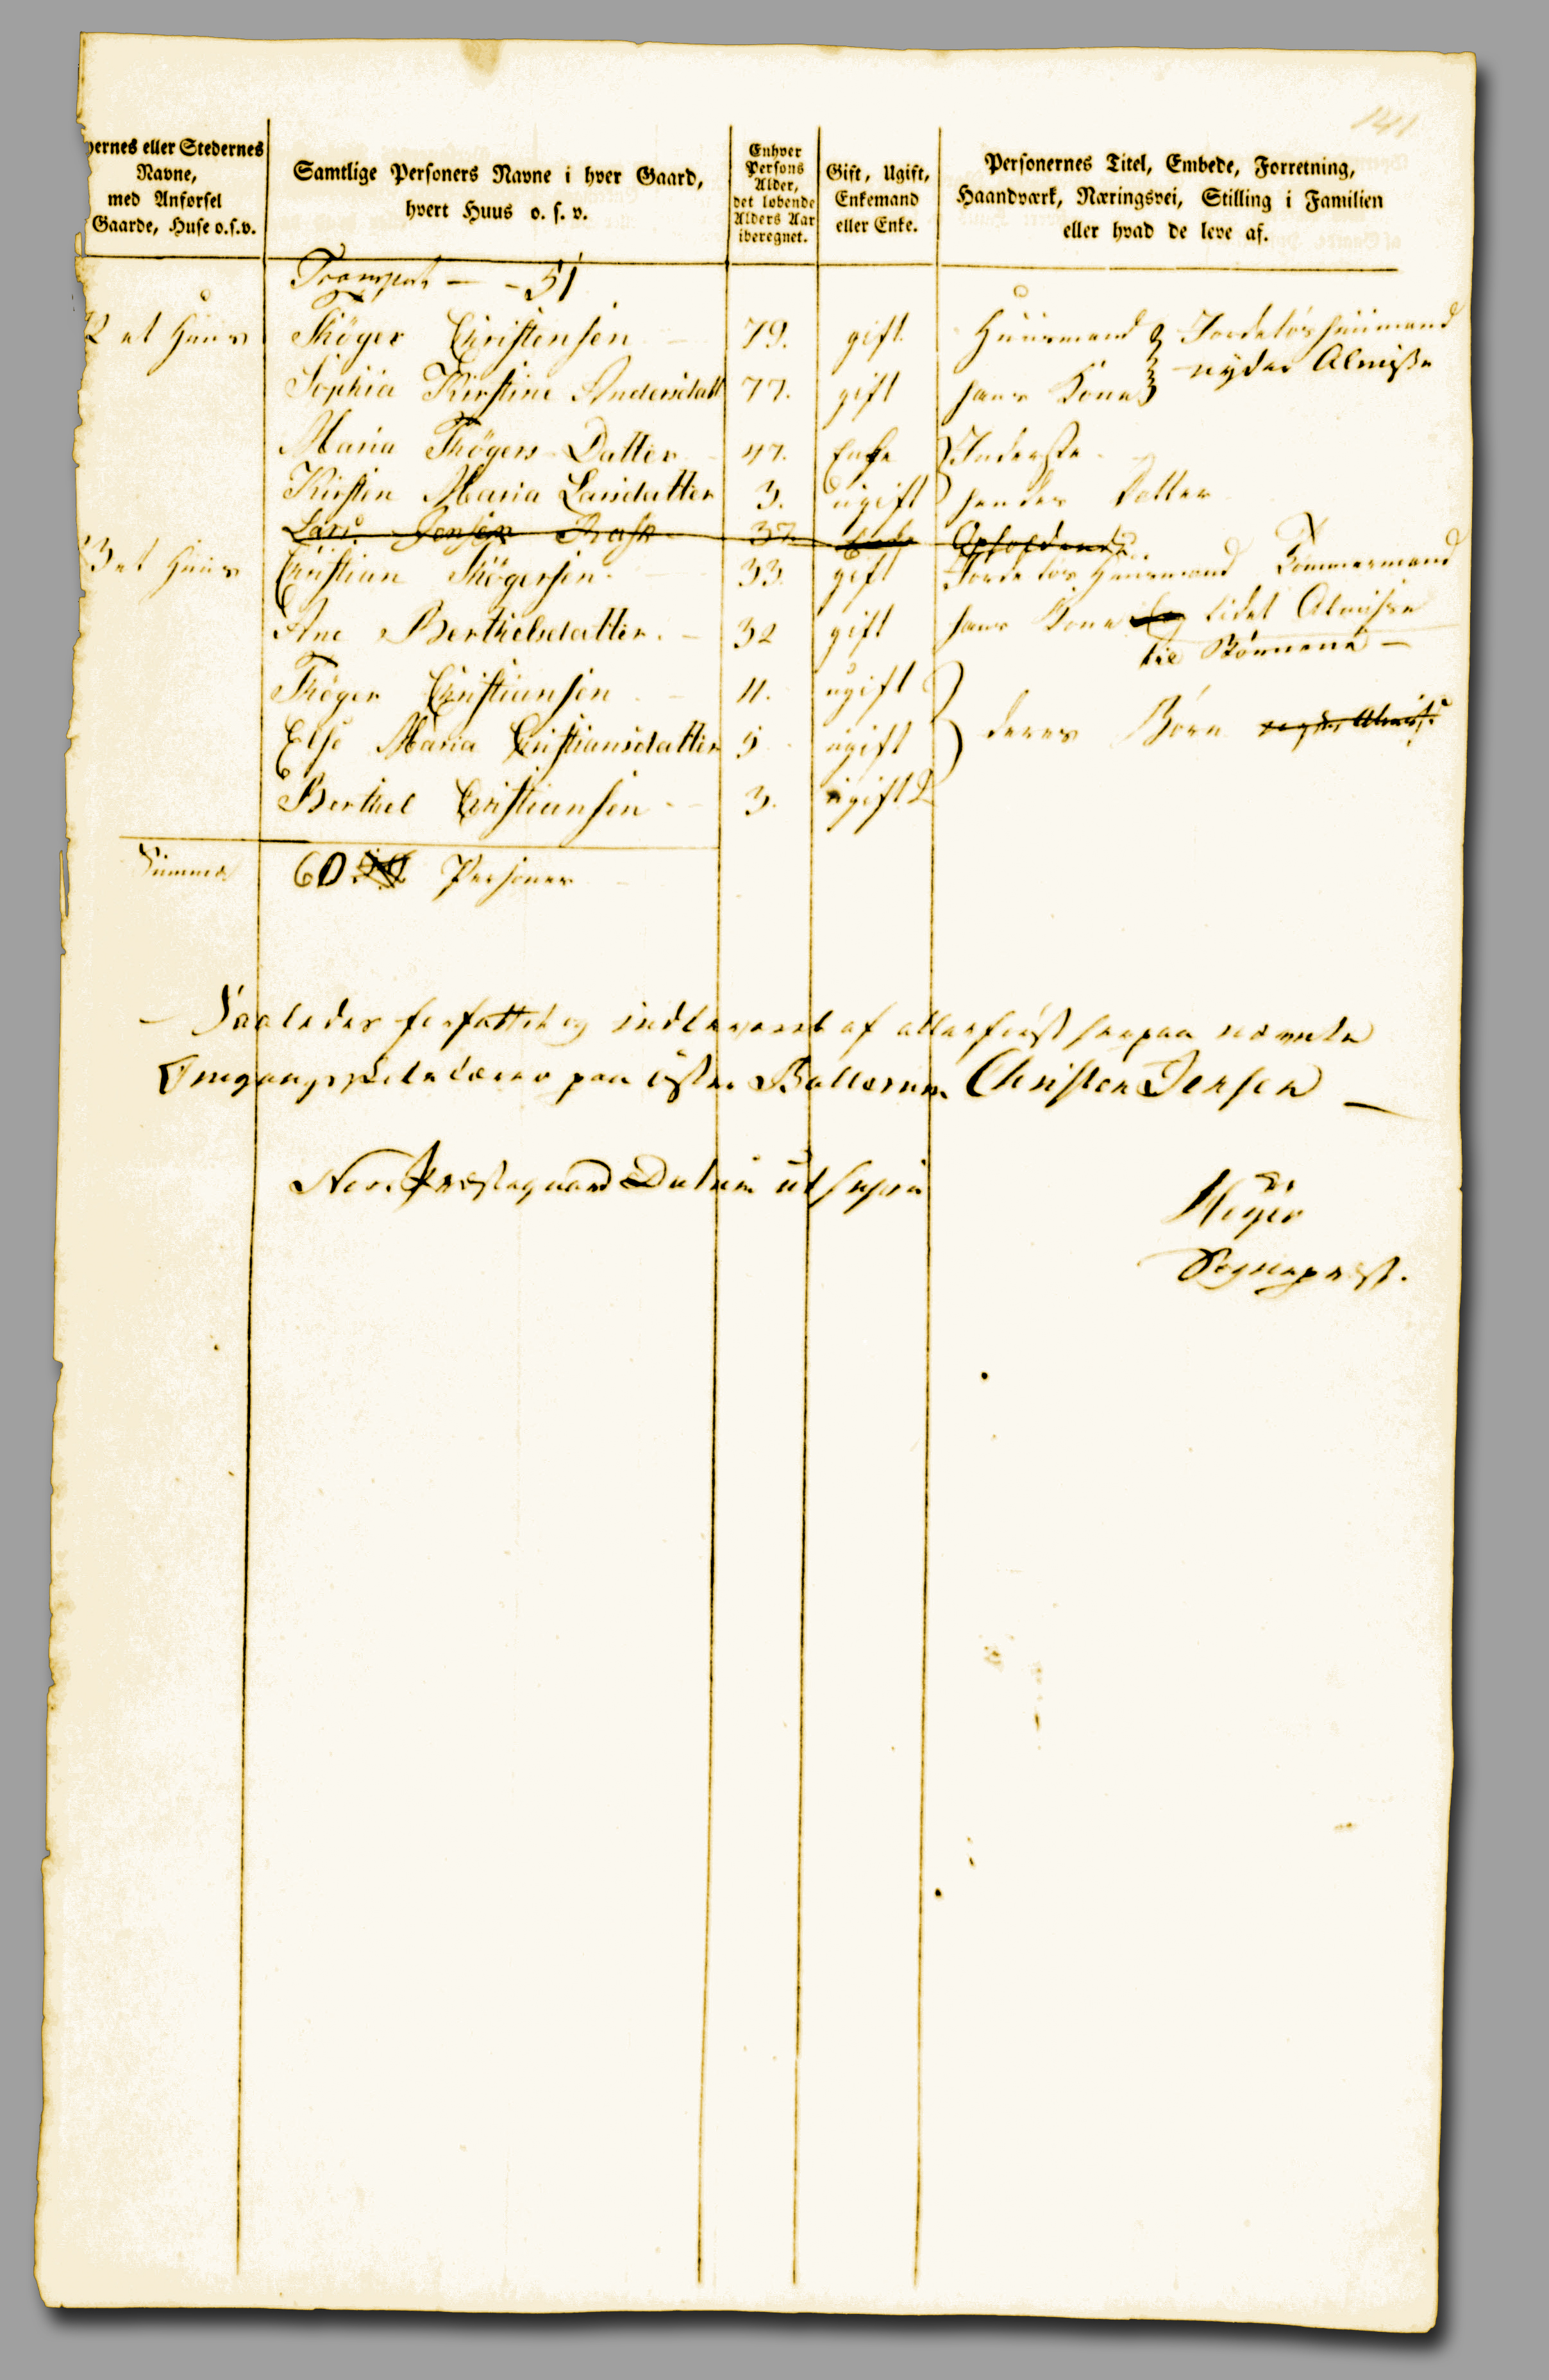 141
yernes eller Stedernes
Navne,
med Anførsel
Gaarde, Huse o.s.v.
Samtlige Personers Navne i hver Gaard,
hvert Huus o. s. v.
Enhver
Persons
Alder,
det løbende
Alders Aar
iberegnet.
Gift, Ugift,
Enkemand
eller Enke.
Personernes Titel, Embede, Forretning,
Haandværk, Næringsvei, Stilling i Familien
eller hvad de leve af.
Transport — - 51
2 et Huus Thöger Christensen 79. gift Huusmand Jordeløs huusmand
Sophia Kirstine Andersdatt 77. gift hans Kone nyder Almisse
Maria Thögers Datter 47. Enke Inderste
Kirsten Maria Larsdatter 3. ugift hendes Datter
Lars Jensen 37.
3 et Huus Christian Thögersen 33. gift Jordeløs Huusmand Tømmermand
Ane Berthelsdatter. 32 gift hans Kone lidet Almisse
til Børnene —
Thöger Christiansen 11. ugift
Else Maria Cristiansdatter 5 ugift deres Børn nyder Almisse
Berthel Cristiansen 3. ugift
Summa 60 Personer
Saaledes forfattet og indleveret af allerførst herpaa nævnte
Omgangsskolelærer paa øster Ballerum Christen Jensen —
Nors Præstegaard Datum ut supra
Meyer
Sognepræst.